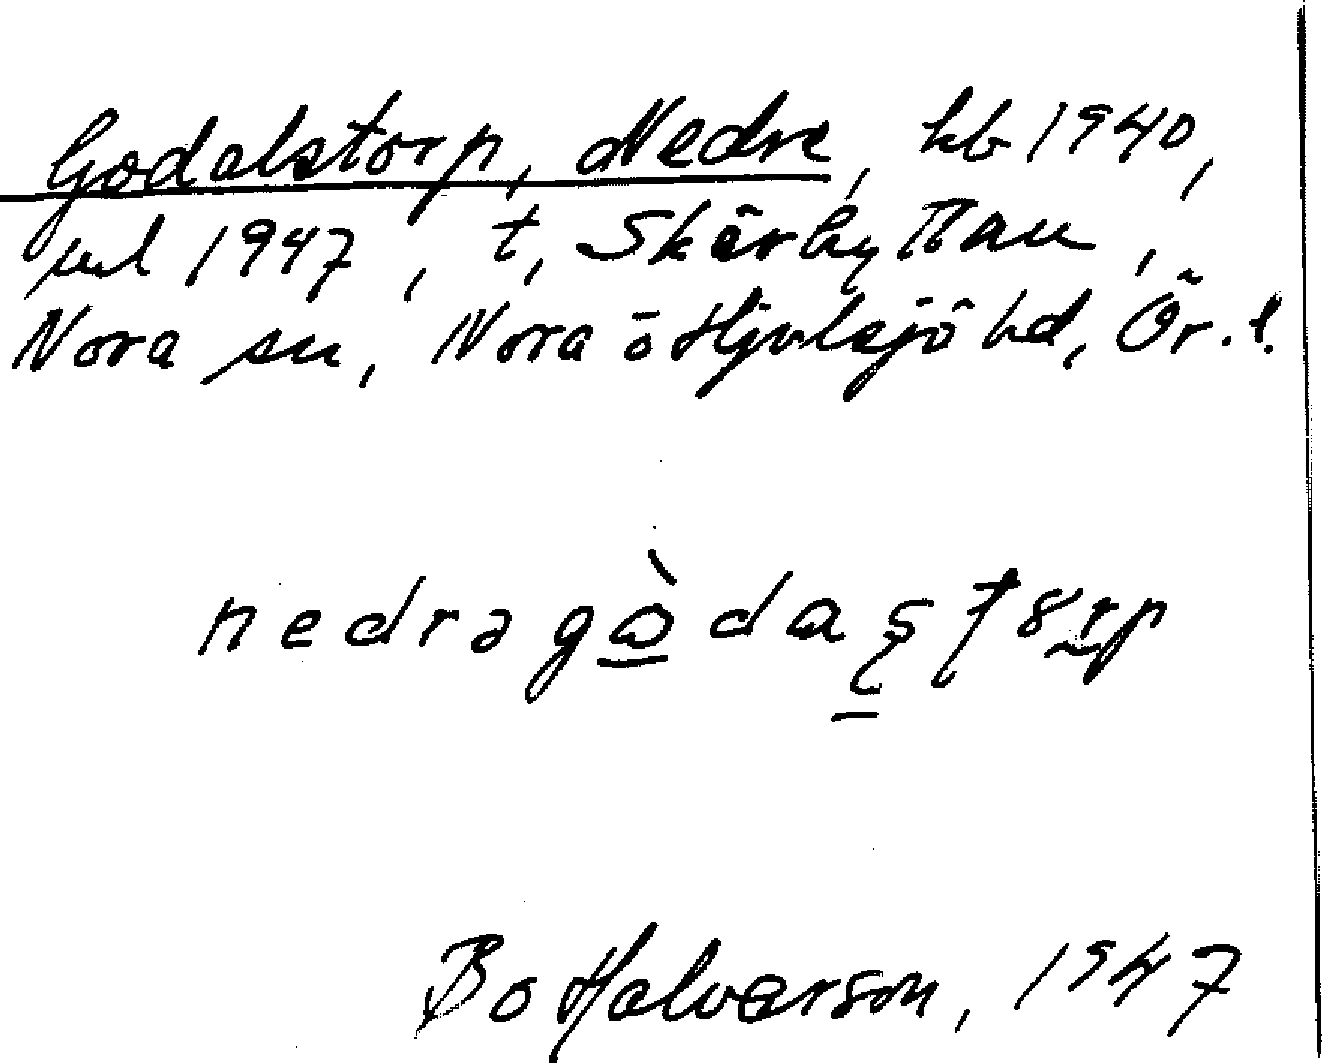 Godalstorp, Nedre, kb 1940,
jul 1947, t, Skärhyttan,
Nora sn, Nora o Hjulsjö hd, Ör. l.
Bo Halvarson, 1947